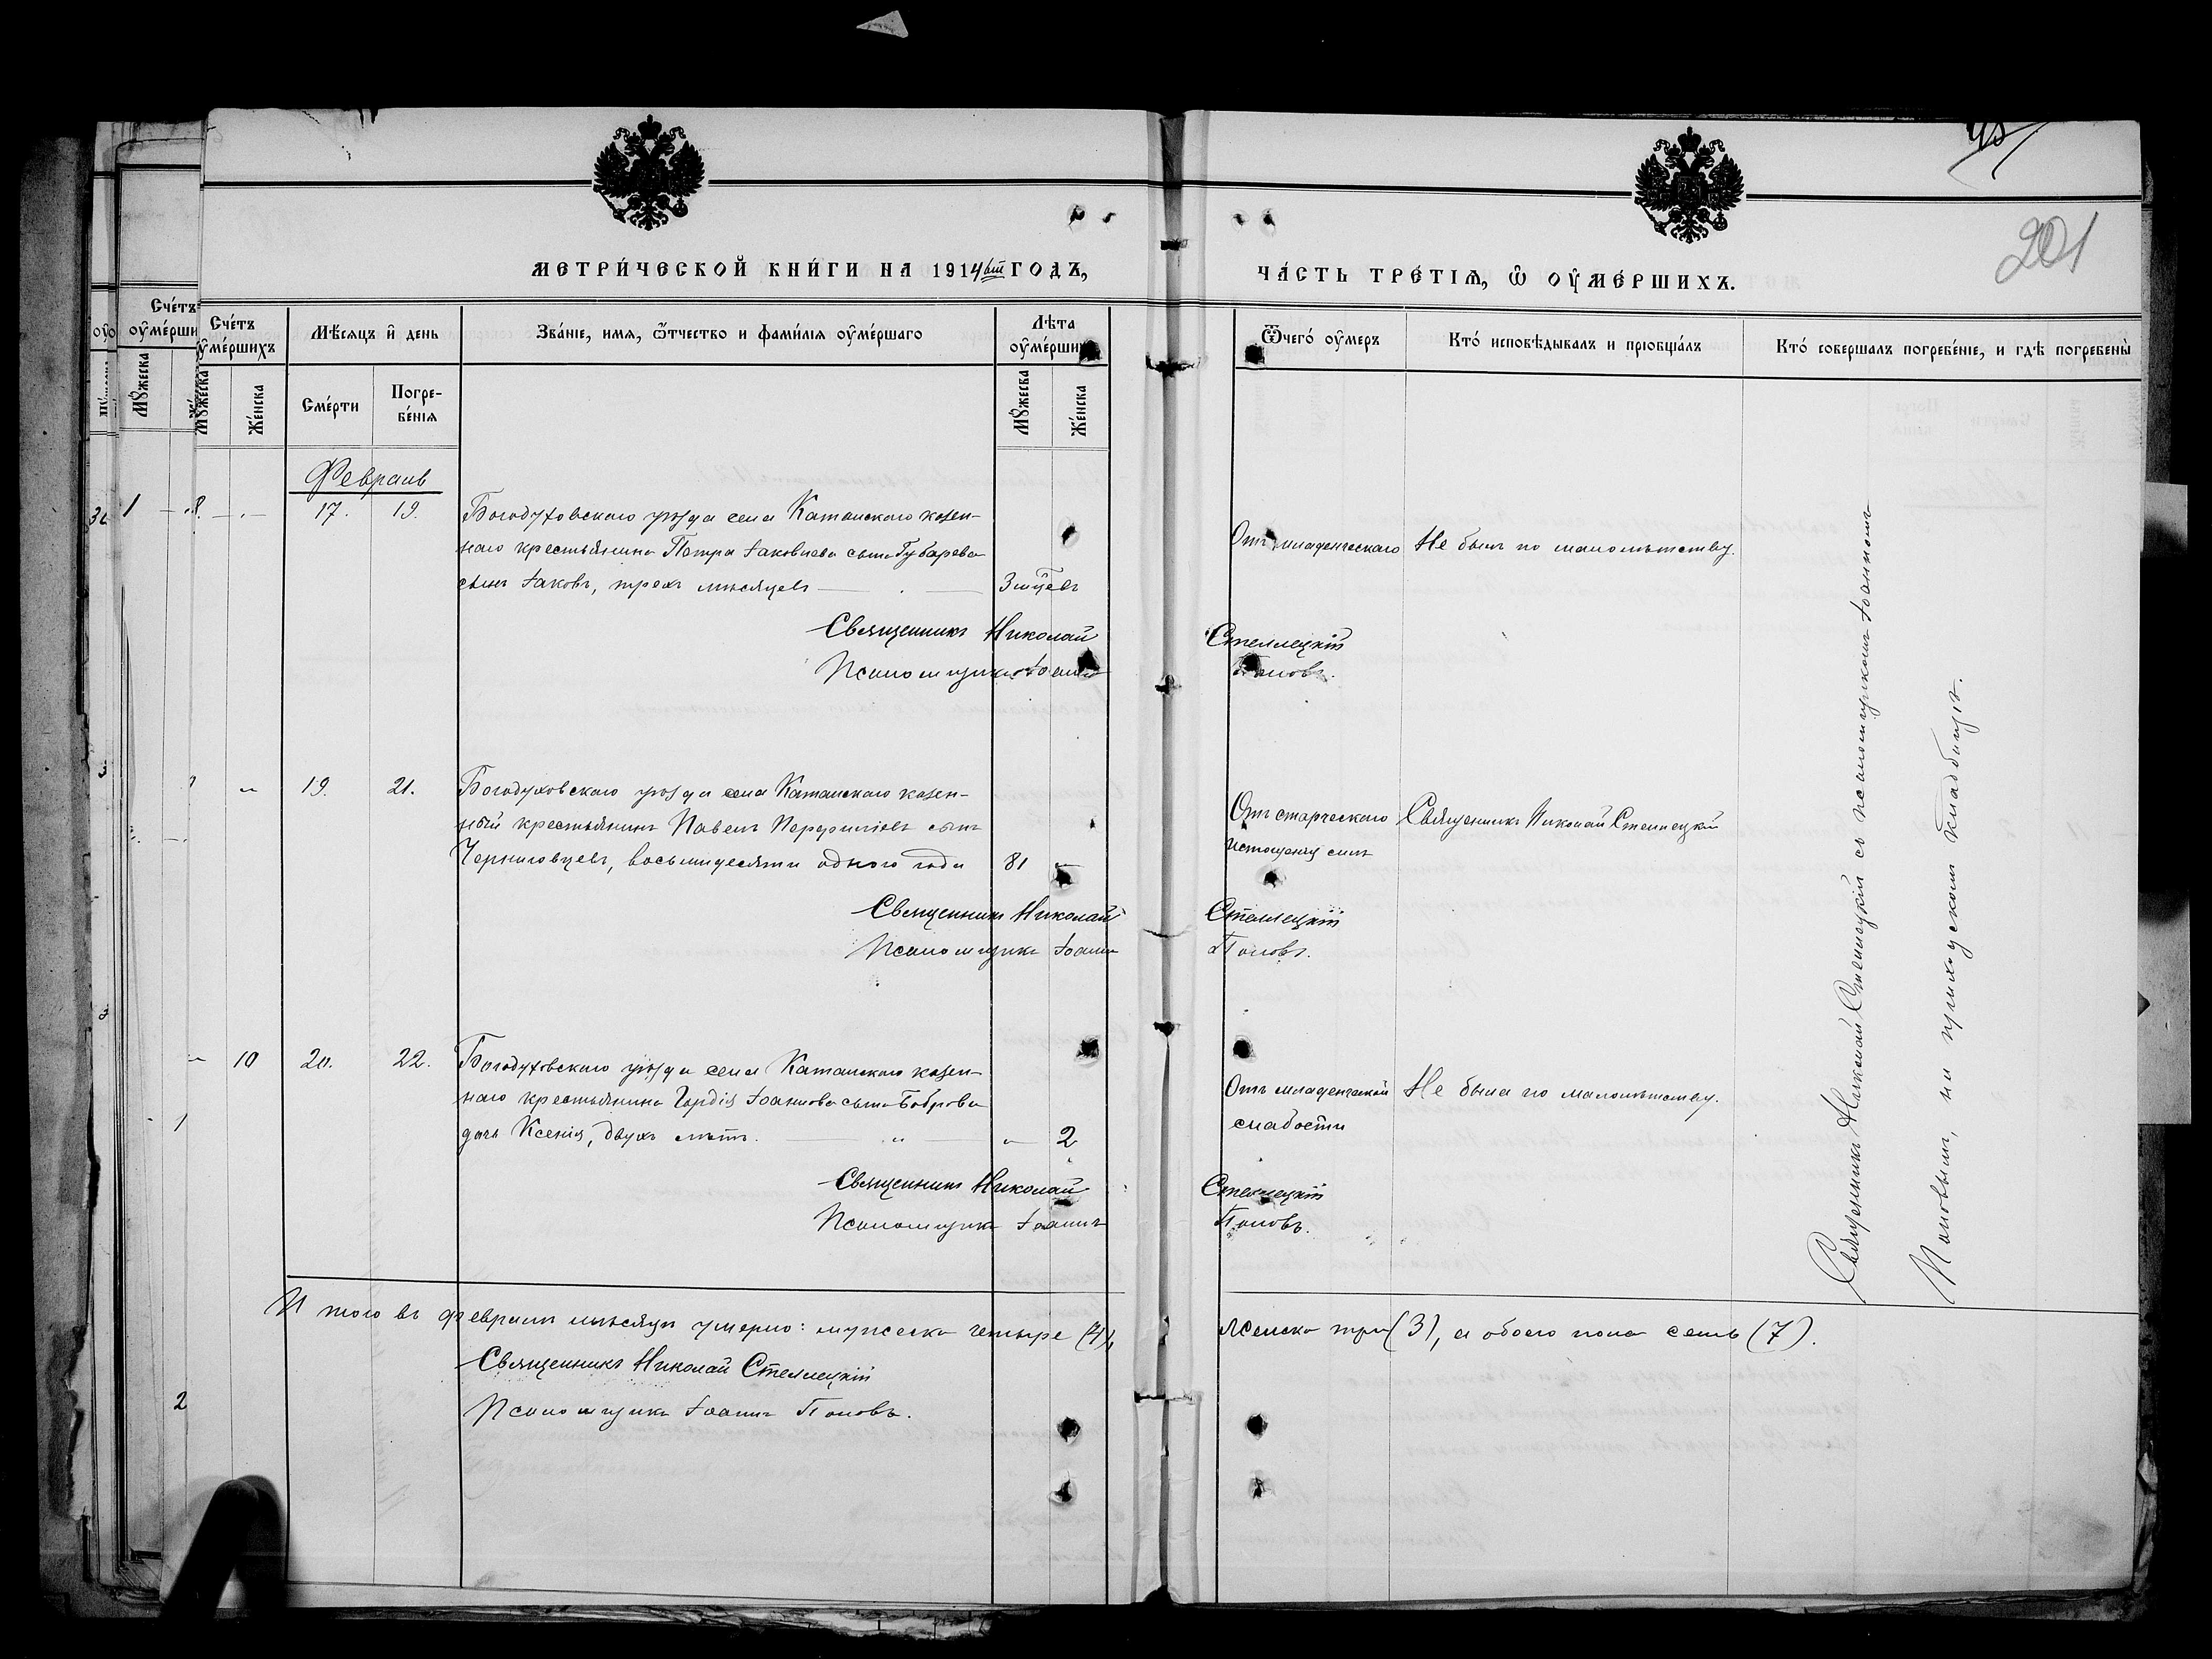 201
МЕТРИЧЕСКОЙ КНИГИ НА 1914ый ГОДЪ,
ЧАСТЬ ТРЕТІѦ, Ѿ ОУМЕРШИХЪ.
Счетъ оумершихъ
Мѣсяцъ и день
Званіе, имя, ѿтчество и фамилія оумершаго
Лѣта оумершихъ
Ѿчего оумеръ
Кто исповѣдывалъ и пріобщалъ
Кто совершалъ погребеніе, и гдѣ погребены
Мужеска
Женска
Смерти
Погребенія
Мужеска
Женска
Февраль
17. 19. Богодуховскаго уѣзда села Катанскаго казен-
наго крестьянина Петра Іаковлева сына Губарева
сынъ Іаковъ, трехъ мѣсяцевъ 3 м̃цевъ
Отъ младенческаго Не былъ по малолѣтству.
Священникъ Николай Стеллецкій
Псаломщикъ Іоаннъ Поповъ.
19. 21. Богодуховскаго уѣзда села Катанскаго казен-
ный крестьянинъ Павелъ Перфиліевъ сынъ
Черниговцевъ, восьмидесяти одного года 81
Отъ старческаго Священникъ Николай Стеллецкій
истощенія силъ
Священникъ Николай Стеллецкій
Псаломщикъ Іоаннъ Поповъ.
10 20. 22. Богодуховскаго уѣзда села Катанскаго казен-
наго крестьянина Гордія Іоаннова сына Боброва
дочь Ксенія, двухъ лѣтъ. 2
Отъ младенческой Не была по малолѣтству.
слабости
Священникъ Николай Стеллецкій
Псаломщикъ Іоаннъ Поповъ.
Священникъ Николай Стеллецкій съ псаломщикомъ Іоанномъ
Поповымъ, на приходскомъ кладбищѣ.
Итого въ февралѣ мѣсяцѣ умерло: мужеска четыре (4), женска три (3), а обоего пола семь (7).
Священникъ Николай Стеллецкій
Псаломщикъ Іоаннъ Поповъ.